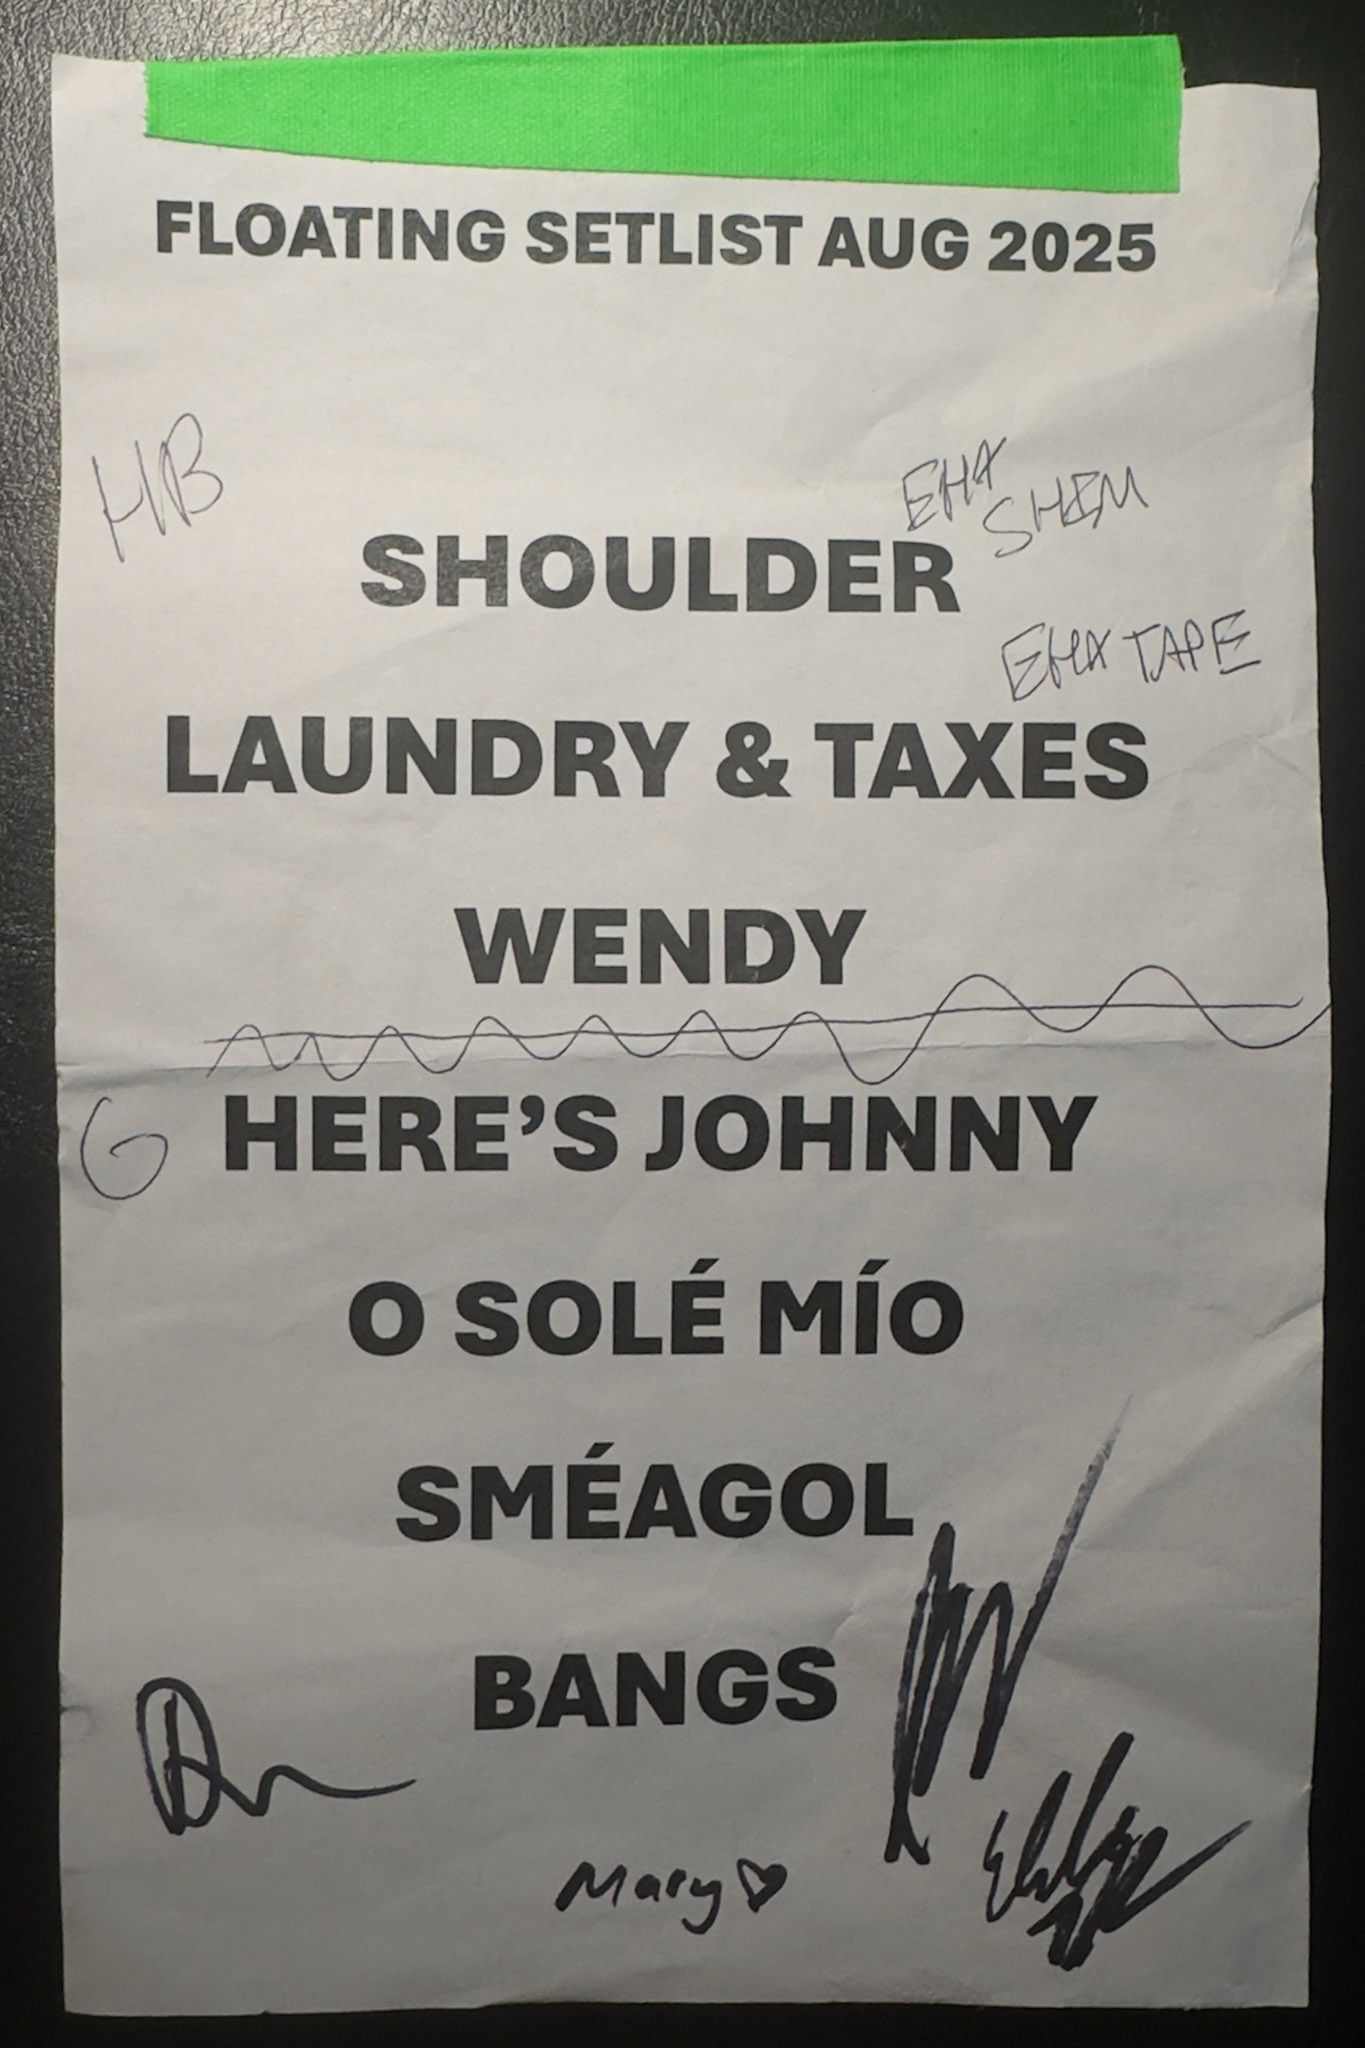 FLOATING SETLIST AUG 2025
HB
EHX
SHEM
SHOULDER
EHX TAPE
LAUNDRY & TAXES
WENDY
G
HERE’S JOHNNY
O SOLÉ MÍO
SMÉAGOL
BANGS
Mary